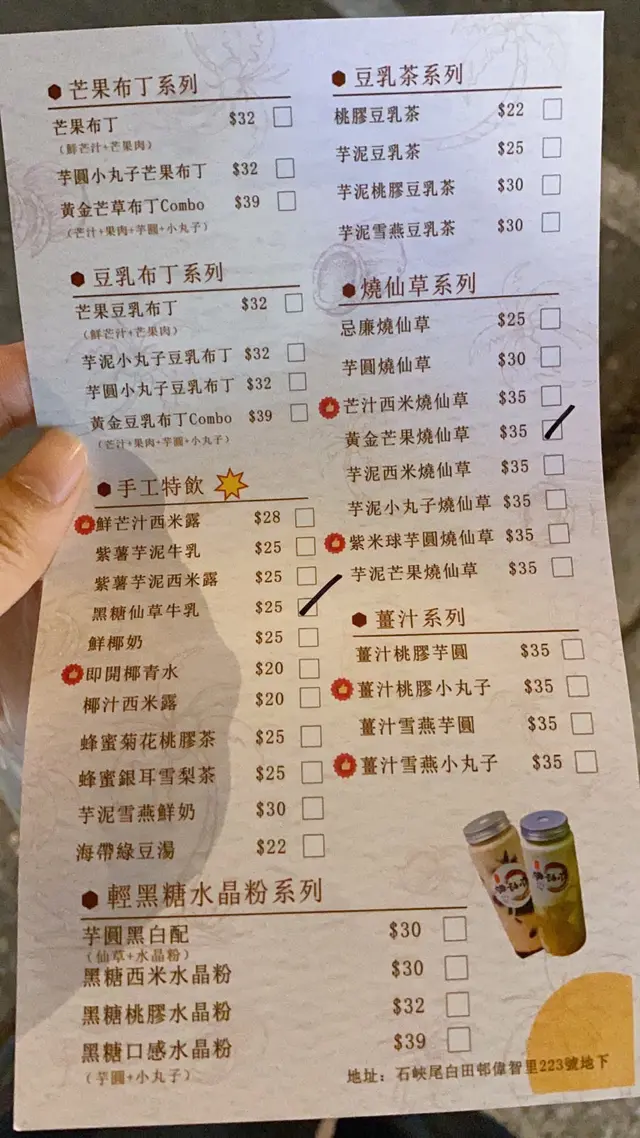 芒果布丁系列
芒果布丁 $32
(鮮芒汁+芒果肉)
芋圓小丸子芒果布丁 $32
黃金芒草布丁Combo $39
(芒汁+果肉+芋圓+小丸子)
豆乳布丁系列
芒果豆乳布丁 $32
(鮮芒汁+芒果肉)
芋泥小丸子豆乳布丁 $32
芋圓小丸子豆乳布丁 $32
黃金豆乳布丁Combo $39
(芒汁+果肉+芋圓+小丸子)
手工特飲
鮮芒汁西米露 $28
紫薯芋泥牛乳 $25
紫薯芋泥西米露 $25
黑糖仙草牛乳 $25
鮮椰奶 $25
即開椰青水 $20
椰汁西米露 $20
蜂蜜菊花桃膠茶 $25
蜂蜜銀耳雪梨茶 $25
芋泥雪燕鮮奶 $30
海帶綠豆湯 $22
豆乳茶系列
桃膠豆乳茶 $22
芋泥豆乳茶 $25
芋泥桃膠豆乳茶 $30
芋泥雪燕豆乳茶 $30
燒仙草系列
忌廉燒仙草 $25
芋圓燒仙草 $30
芒汁西米燒仙草 $35
黃金芒果燒仙草 $35
芋泥西米燒仙草 $35
芋泥小丸子燒仙草 $35
紫米球芋圓燒仙草 $35
芋泥芒果燒仙草 $35
薑汁系列
薑汁桃膠芋圓 $35
薑汁桃膠小丸子 $35
薑汁雪燕芋圓 $35
薑汁雪燕小丸子 $35
輕黑糖水晶粉系列
芋圓黑白配 $30
(仙草+水晶粉)
黑糖西米水晶粉 $30
黑糖桃膠水晶粉 $32
黑糖口感水晶粉 $39
(芋圓+小丸子)
地址：石峽尾白田邨偉智里223號地下